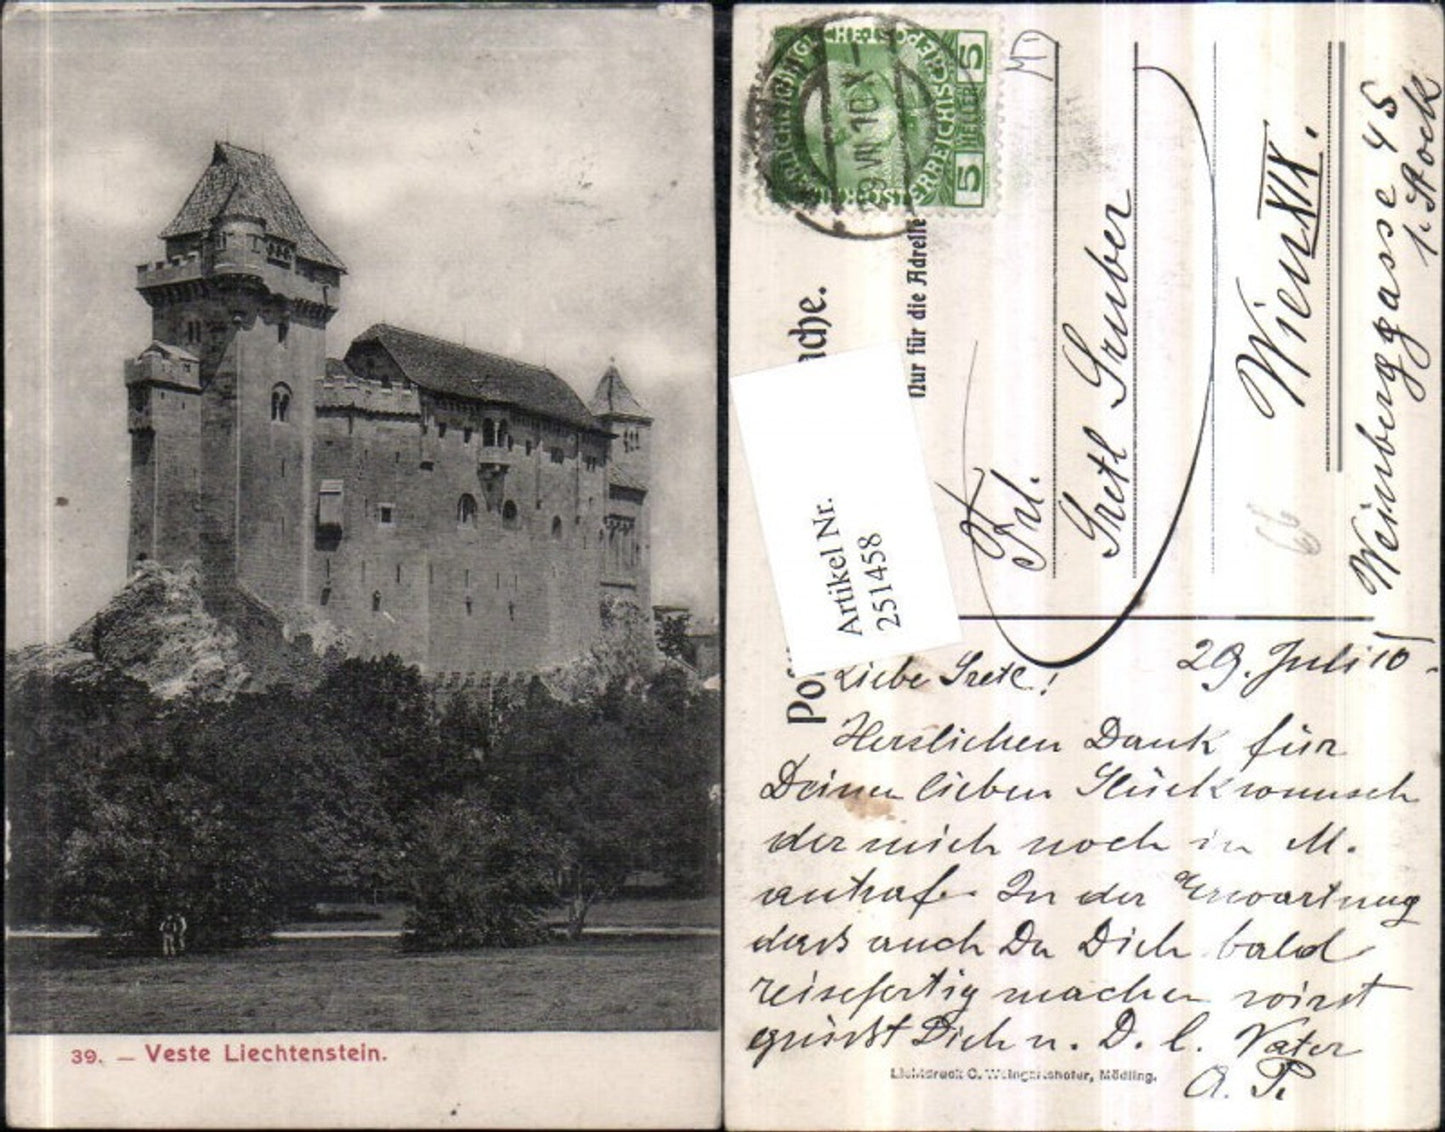 39. — Veste Liechtenstein.
5 HELLER 5
VII 10 X
Nur für die Adresse
ache.
Po
Artikel Nr.
251458
Frl.
Gretl Gruber
Wien XIX.
Weinberggasse 45
1. Stock
29. Juli 10
Liebe Gretl!
Herzlichen Dank für
Deinen lieben Glückwunsch
der mich noch in M.
antraf. In der Erwartung
dass auch Du Dich bald
reisefertig machen wirst
grüsst Dich u. D. l. Vater
A. P.
Lichtdruck C. Weingartshofer, Mödling.